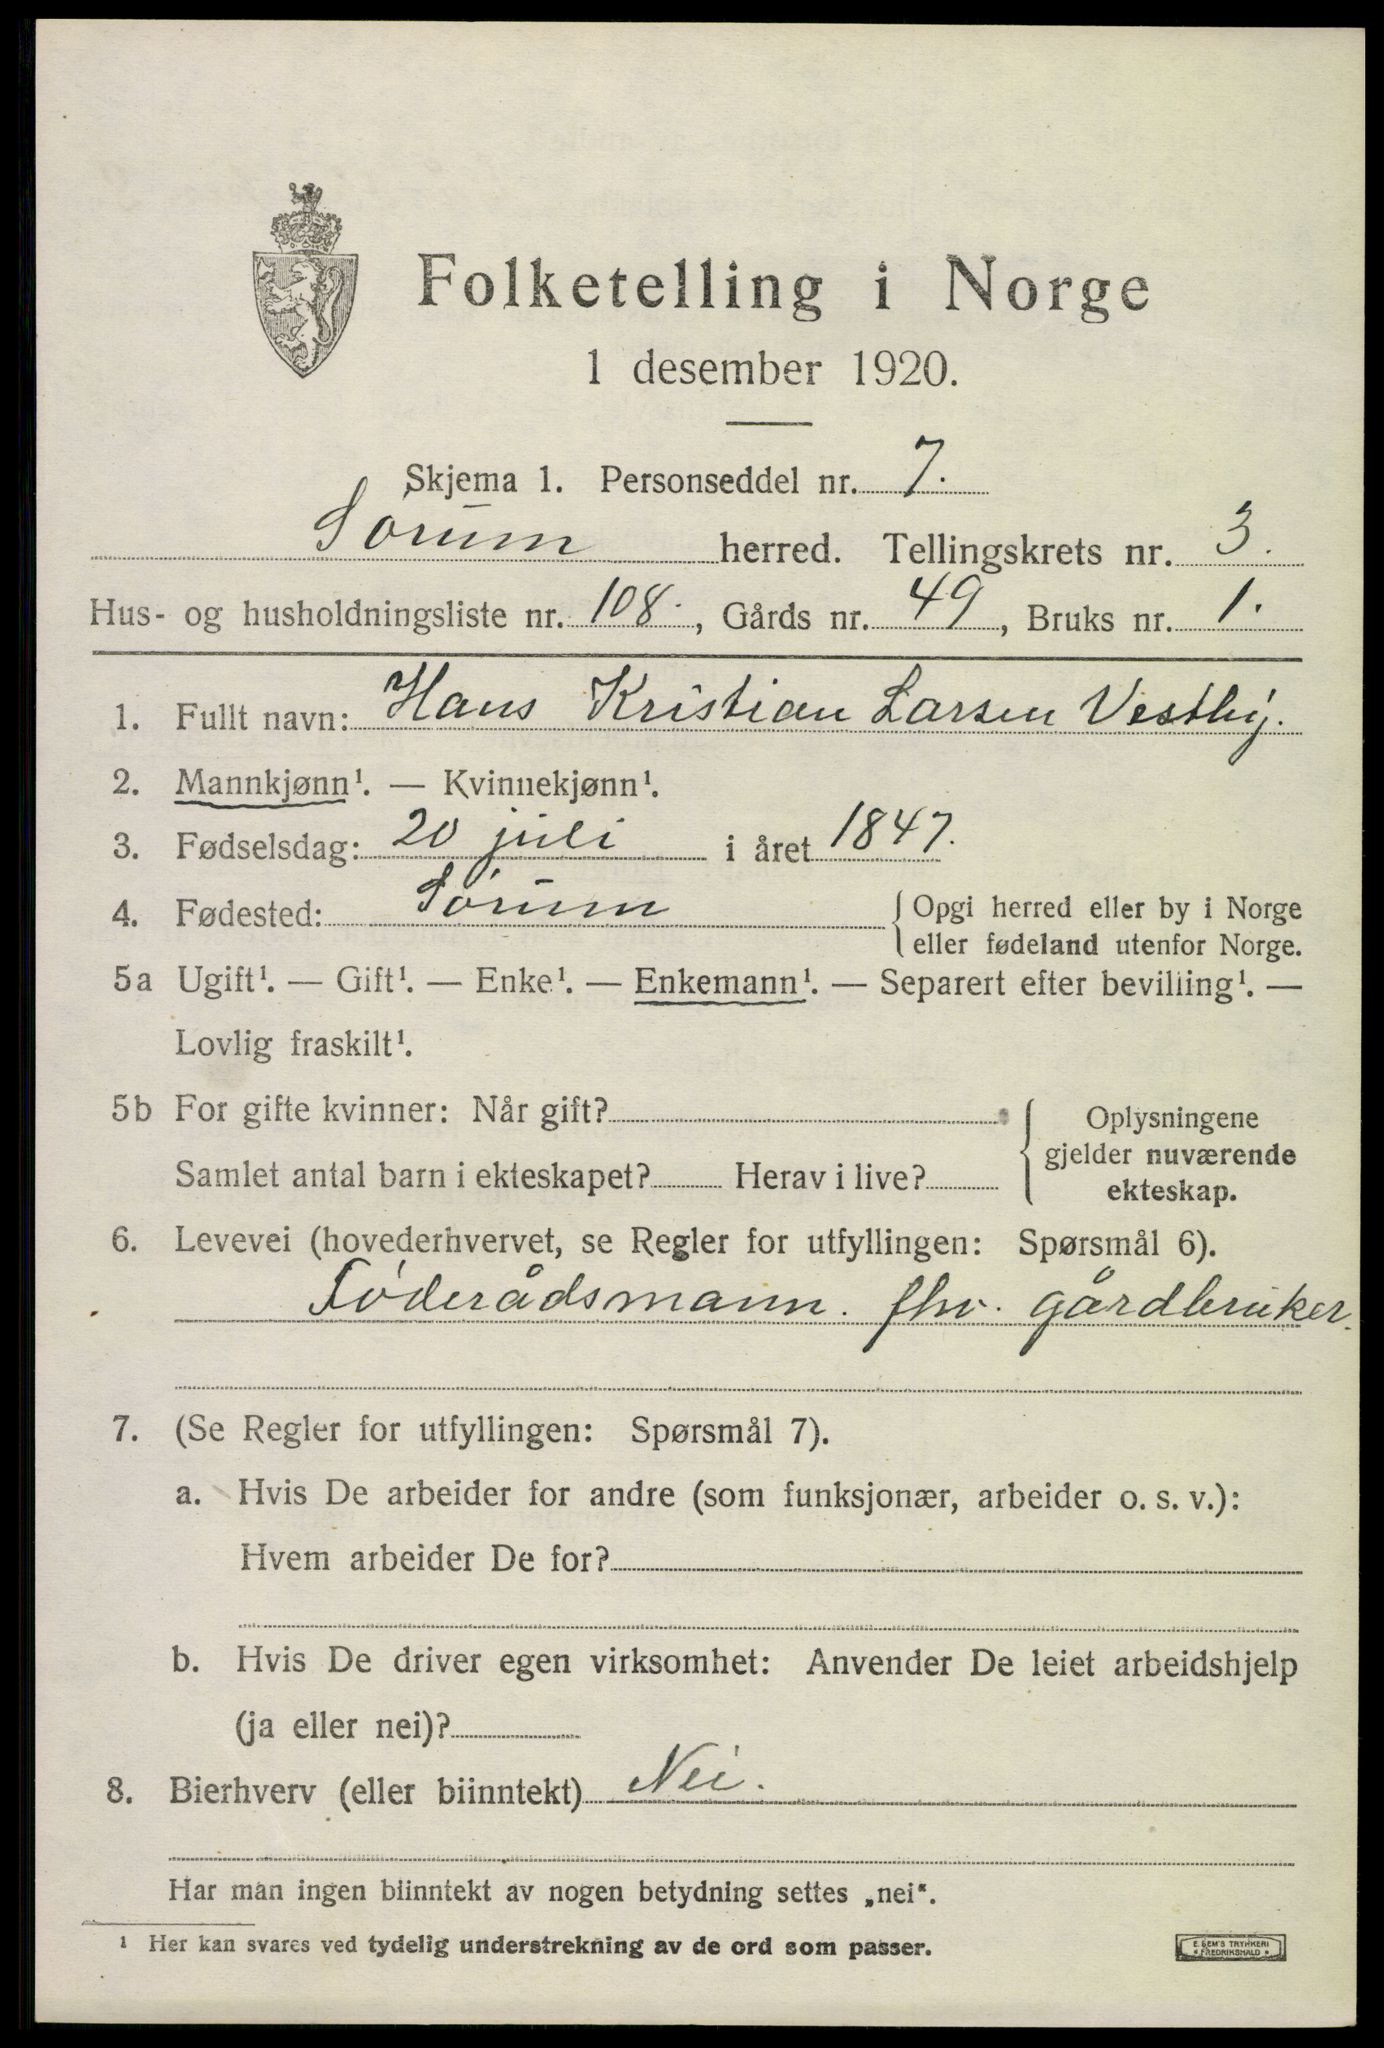 Folketelling i Norge
1 desember 1920.
Skjema 1. Personseddel nr. 7.
Sørum herred. Tellingskrets nr. 3.
Hus- og husholdningsliste nr. 108., Gårds nr. 49, Bruks nr. 1.
1. Fullt navn: Hans Kristian Larsen Vestby.
2. Mannkjønn¹. — Kvinnekjønn¹.
3. Fødselsdag: 20 juli i året 1847.
4. Fødested: Sørum { Opgi herred eller by i Norge
eller fødeland utenfor Norge.
5a Ugift¹. — Gift¹. — Enke¹. — Enkemann¹. — Separert efter bevilling¹. —
Lovlig fraskilt¹.
5b For gifte kvinner: Når gift? { Oplysningene
gjelder nuværende
Samlet antal barn i ekteskapet? Herav i live?
ekteskap.
6. Levevei (hovederhvervet, se Regler for utfyllingen: Spørsmål 6).
Føderådsmann. fhv. gårdbruker.
7. (Se Regler for utfyllingen: Spørsmål 7).
a. Hvis De arbeider for andre (som funksjonær, arbeider o. s. v.):
Hvem arbeider De for?
b. Hvis De driver egen virksomhet: Anvender De leiet arbeidshjelp
(ja eller nei)?
8. Bierhverv (eller biinntekt) Nei.
Har man ingen biinntekt av nogen betydning settes „nei".
¹ Her kan svares ved tydelig understrekning av de ord som passer.
E. SEM'S TRYKKERI
• FREDRIKSHALD •